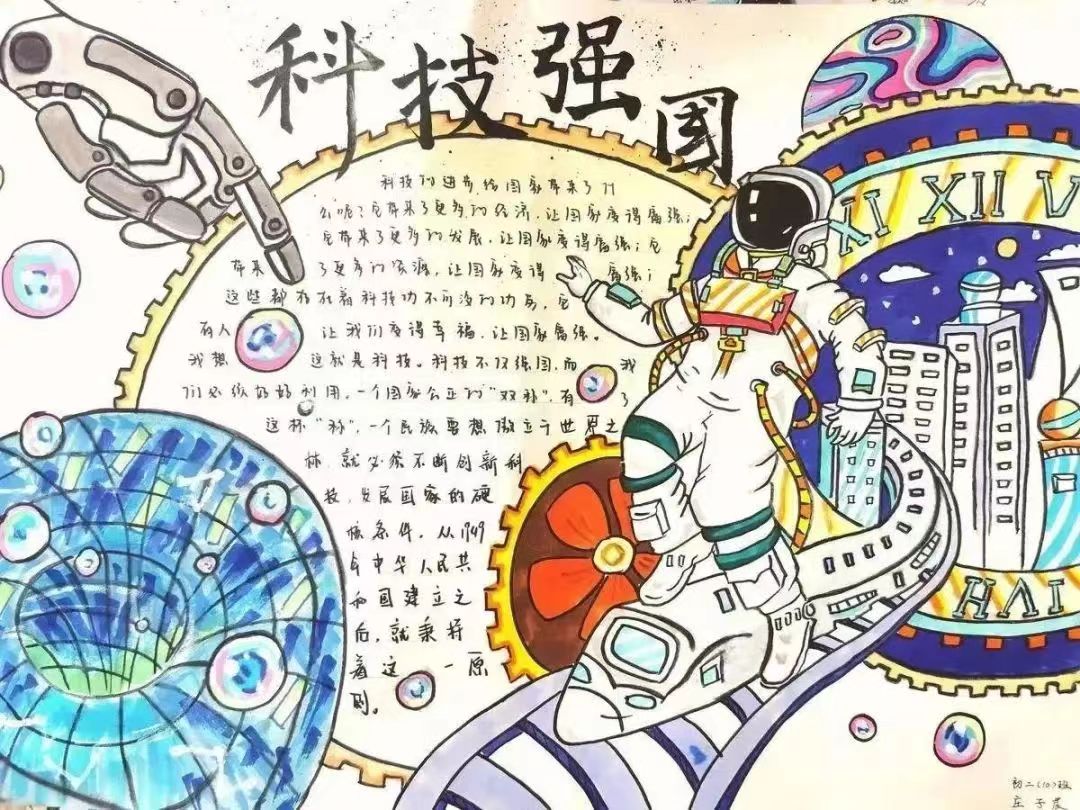 科技强国
科技的进步给国家带来了什
么呢?它带来了更多的经济,让国家变得富强;
它带来了更多的发展,让国家变得富强;它
带来了更多的资源,让国家变得富强;
这些都存在着科技功不可没的功劳,它
有人让我们变得幸福,让国家富强。
我想这就是科技。科技不仅强国,而我
们必须好好利用,一个国家公立的“双科”,有了
这杯“称”,一个民族要想傲立于世界之
林,就必须不断创新科
技,发展国家的硬
核条件,从1949
年中华人民共
和国建立之
后,就秉持
着这一原
则。
XI XII V
IVH
初二(10)班
庄子宸